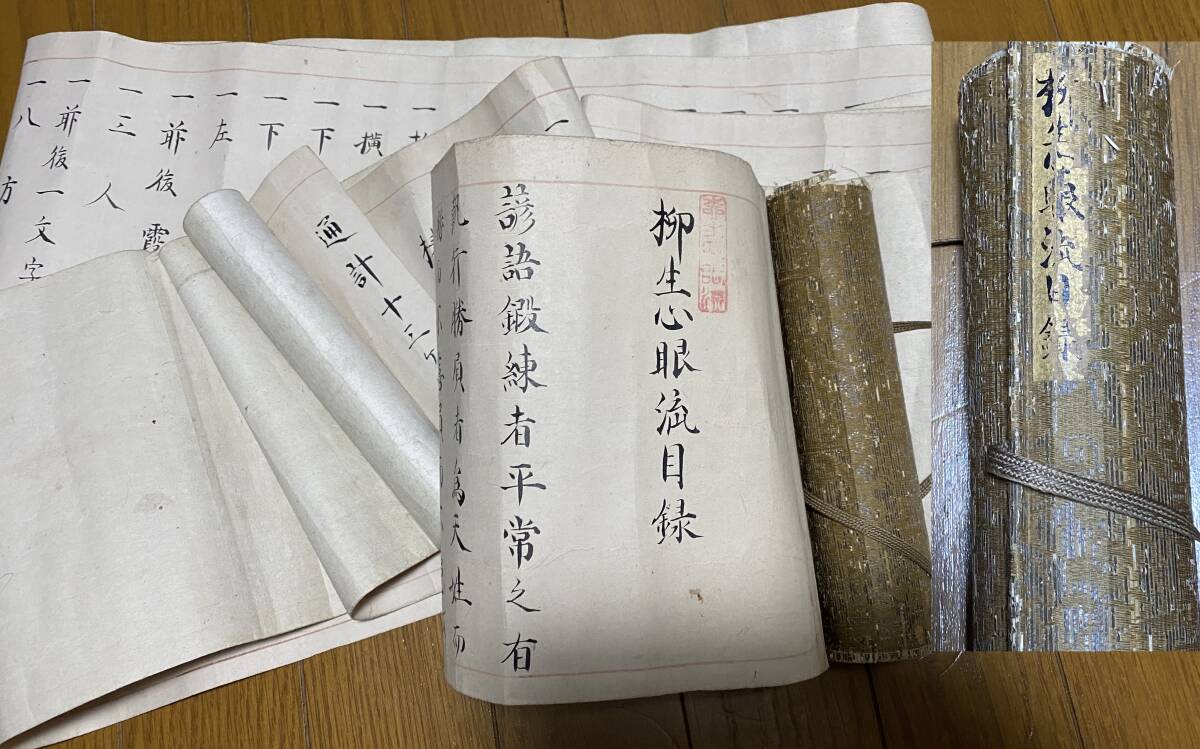 柳生心眼流目録
諺語鍛練者平常之有
執行勝負者為天性而
柳生心眼流目録
通計十三ケ
一横
一下
一下
一左
一前後霞
一三人
一前後一文字
一八方